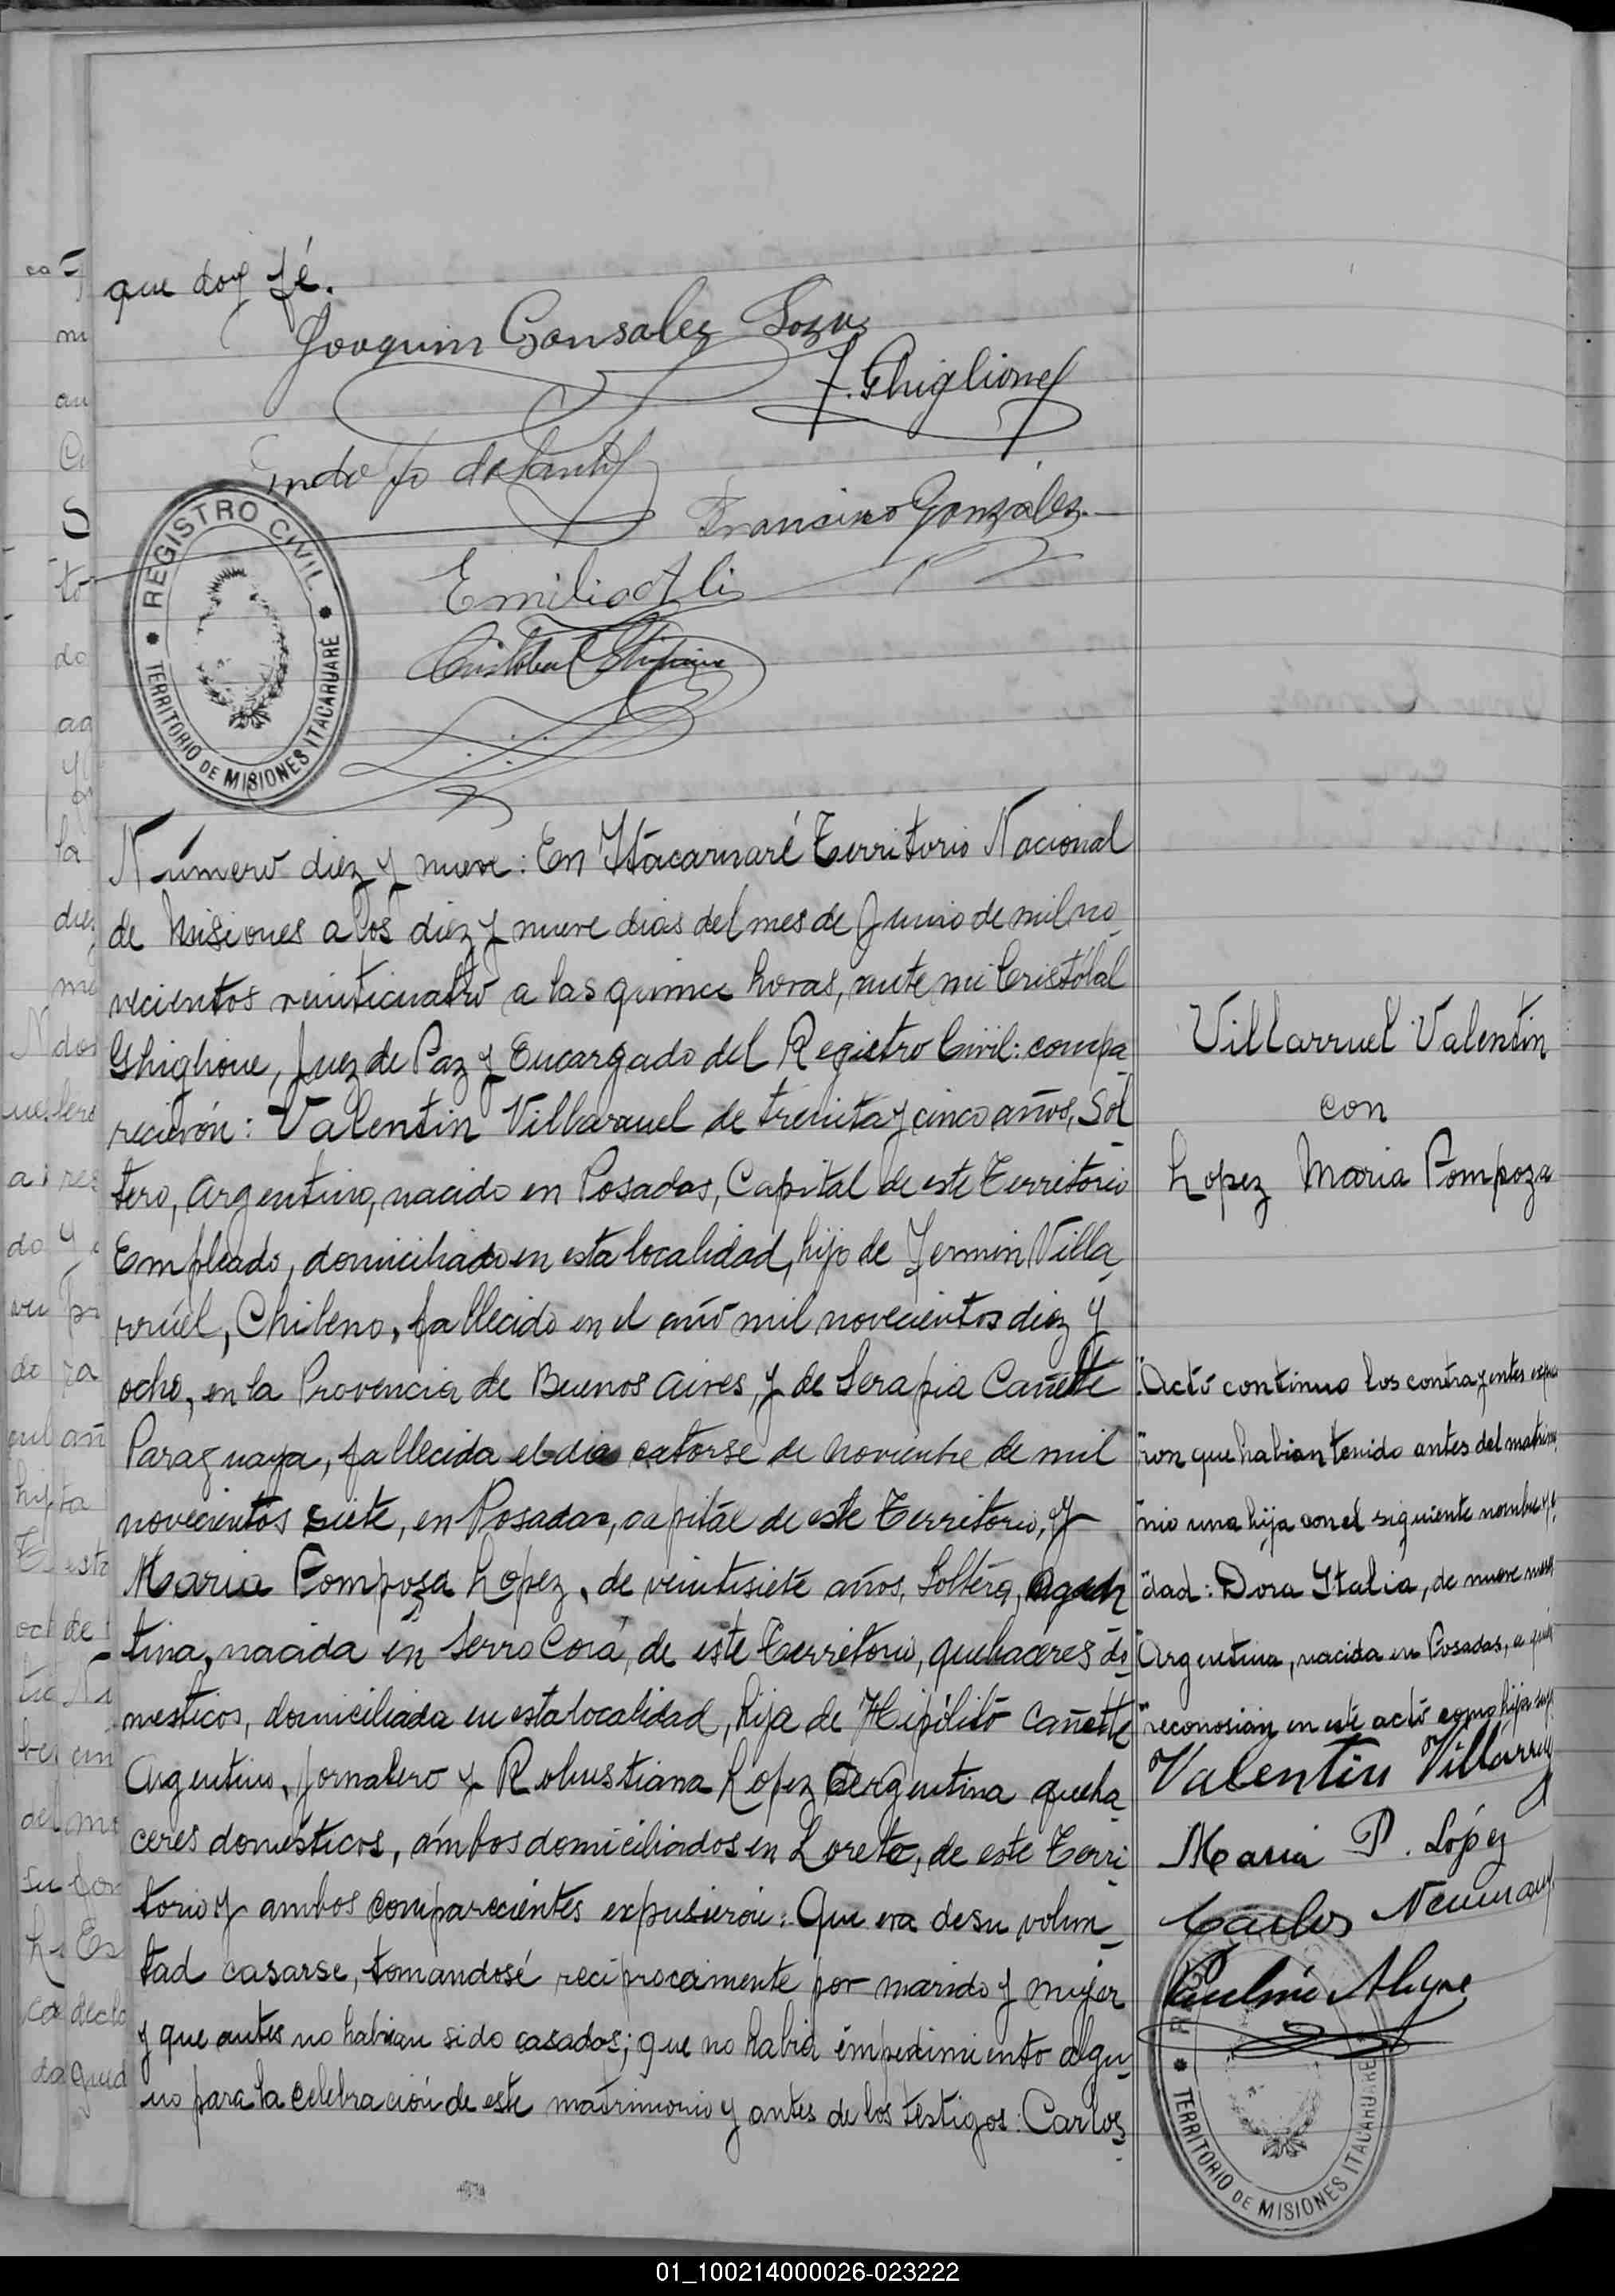 que doy fé.
Joaquin Gonsalez Soza
J. Ghiglione
Francisco Gonzalez
Emilio
Cristobal Ghiglione
REGISTRO CIVIL
TERRITORIO DE MISIONES ITACARUARÉ
Número diez y nueve: En Itacaruaré Territorio Nacional
de Misiones a los diez y nueve dias del mes de Junio de mil no_
vecientos veinticuatro a las quince horas, ante mi Cristóbal
Ghiglione, Juez de Paz y Encargado del Registro Civil: compa_
recierón: Valentin Villaruel de treinta y cinco años, Sol_
tero, Argentino, nacido en Posadas, Capital de este Territorio
Empleado, domiciliado en esta localidad, hijo de Fermin Villa_
rruel, Chileno, fallecido en el año mil novecientos diez y
ocho, en la Provencia de Buenos Aires, y de Serapia Cañette
Paraguaya, fallecida el dia catorse de noviembre de mil
novecientos siete, en Posadas, capital de este Territorio, y
Maria Pompoza Lopez, de veintisiete años, Soltera, Argen
tina, nacida en Serro Corá, de este Territorio, quehaceres do_
mesticos, domiciliada en esta localidad, hija de Hipólito Cañette
Argentino, Jornalero y Robustiana Lopez Argentina queha_
ceres domésticos, ámbos domiciliados en Loreto, de este Terri_
torio y ambos comparecientes expusierón: Que era de su volun_
tad casarse, tomandosé reciprocamente por marido y mujer
y que antes no habian sido casados; que no habia impedimiento algu_
no para la celebración de este matrimonio y antes de los testigos: Carlos
Villarruel Valentin
con
Lopez Maria Pompoza
Actó continuo los contrayentes
ron que habian tenido antes del matrimo
nio una hija con el siguiente nombre y e
dad: Dora Italia, de nueve meses
Argentina, nacida en Posadas, a quien
reconosian en este actó como hija suya
Valentin Villarruel
Maria P. López
Carlos Neumann
Paulino
TERRITORIO DE MISIONES ITACARUARE
01_100214000026-023222